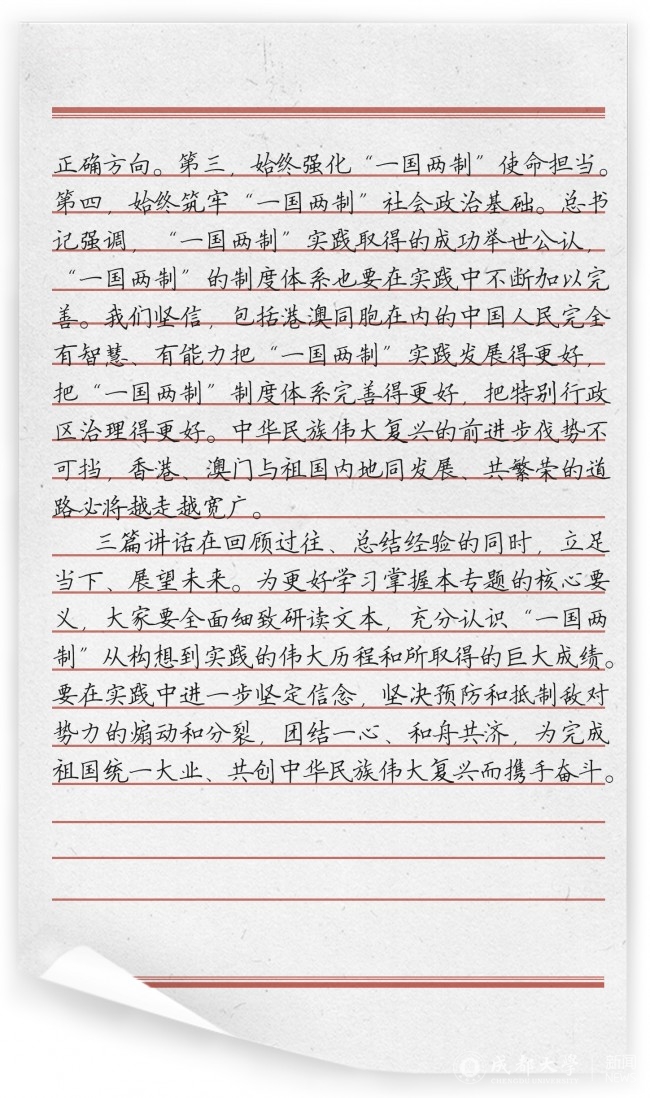 正确方向。第三，始终强化“一国两制”使命担当。
第四，始终筑牢“一国两制”社会政治基础。总书
记强调，“一国两制”实践取得的成功举世公认，
“一国两制”的制度体系也要在实践中不断加以完
善。我们坚信，包括港澳同胞在内的中国人民完全
有智慧、有能力把“一国两制”实践发展得更好，
把“一国两制”制度体系完善得更好，把特别行政
区治理得更好。中华民族伟大复兴的前进步伐势不
可挡，香港、澳门与祖国内地同发展、共繁荣的道
路必将越走越宽广。
三篇讲话在回顾过往、总结经验的同时，立足
当下、展望未来。为更好学习掌握本专题的核心要
义，大家要全面细致研读文本，充分认识“一国两
制”从构想到实践的伟大历程和所取得的巨大成绩。
要在实践中进一步坚定信念，坚决预防和抵制敌对
势力的煽动和分裂，团结一心、和舟共济，为完成
祖国统一大业、共创中华民族伟大复兴而携手奋斗。
成都大学 新闻
CHENGDU UNIVERSITY